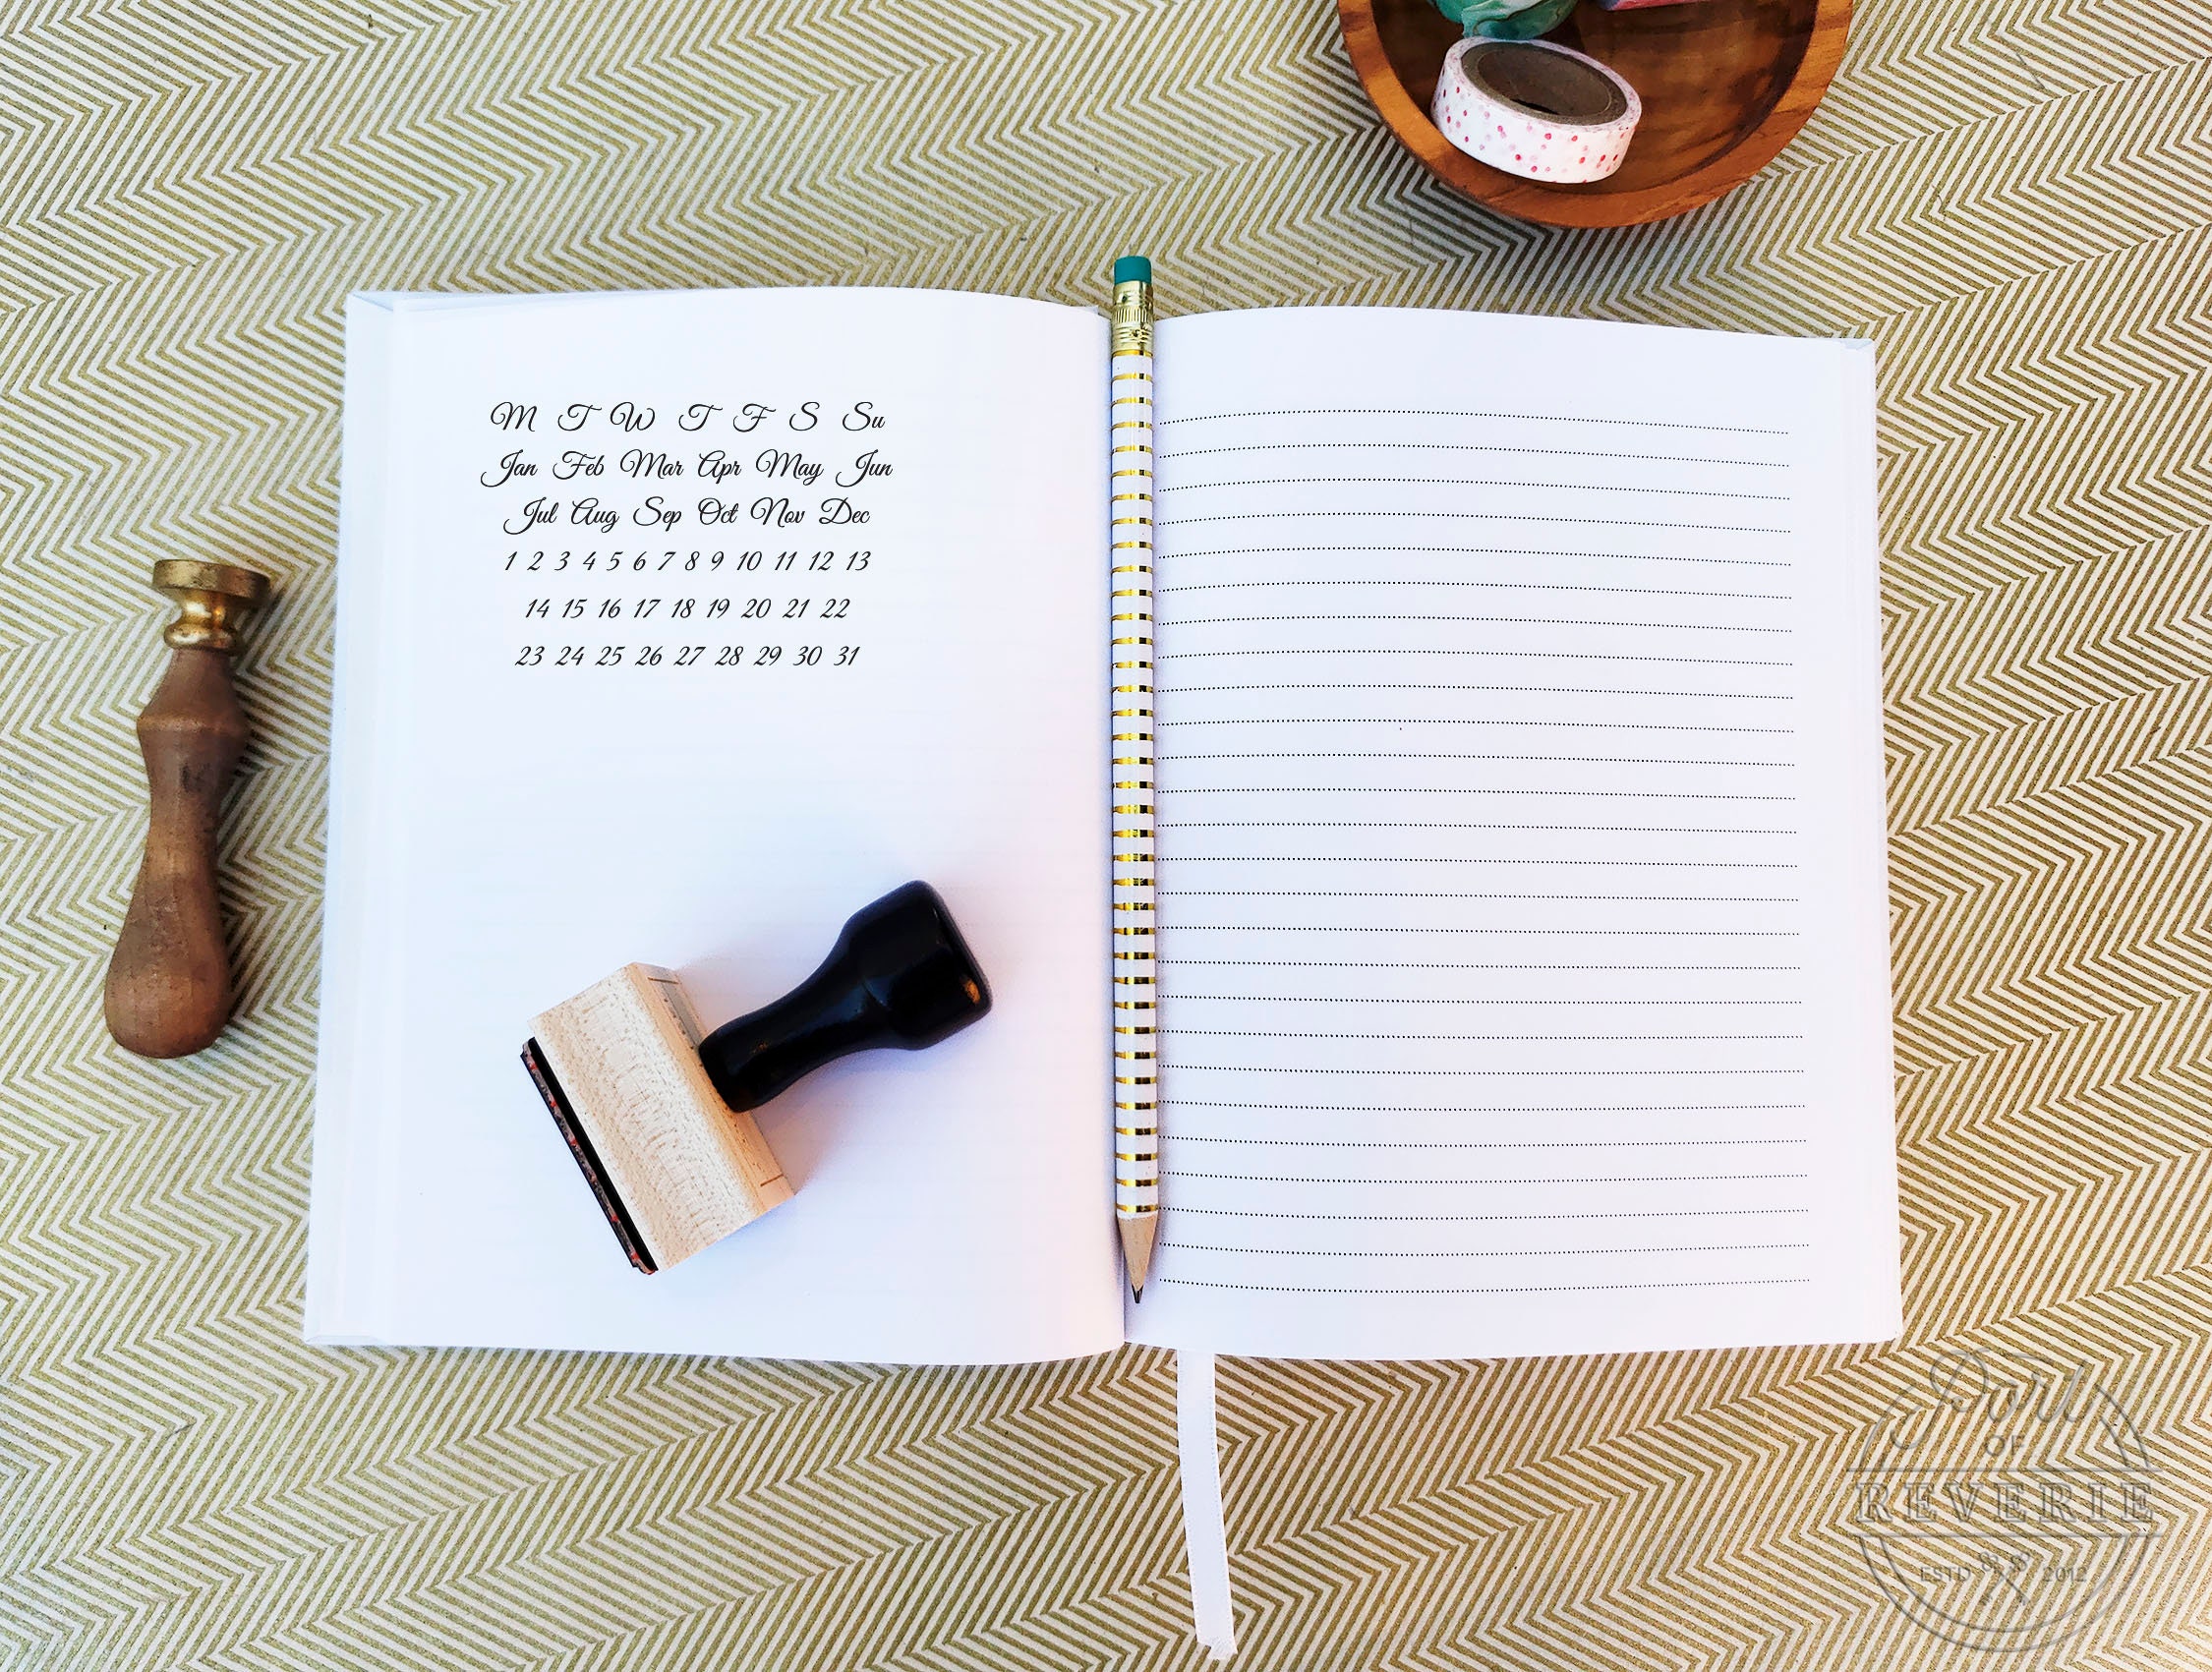 M T W T F S Su
Jan Feb Mar Apr May Jun
Jul Aug Sep Oct Nov Dec
1 2 3 4 5 6 7 8 9 10 11 12 13
14 15 16 17 18 19 20 21 22
23 24 25 26 27 28 29 30 31
Port
OF
REVERIE
ESTD 2012